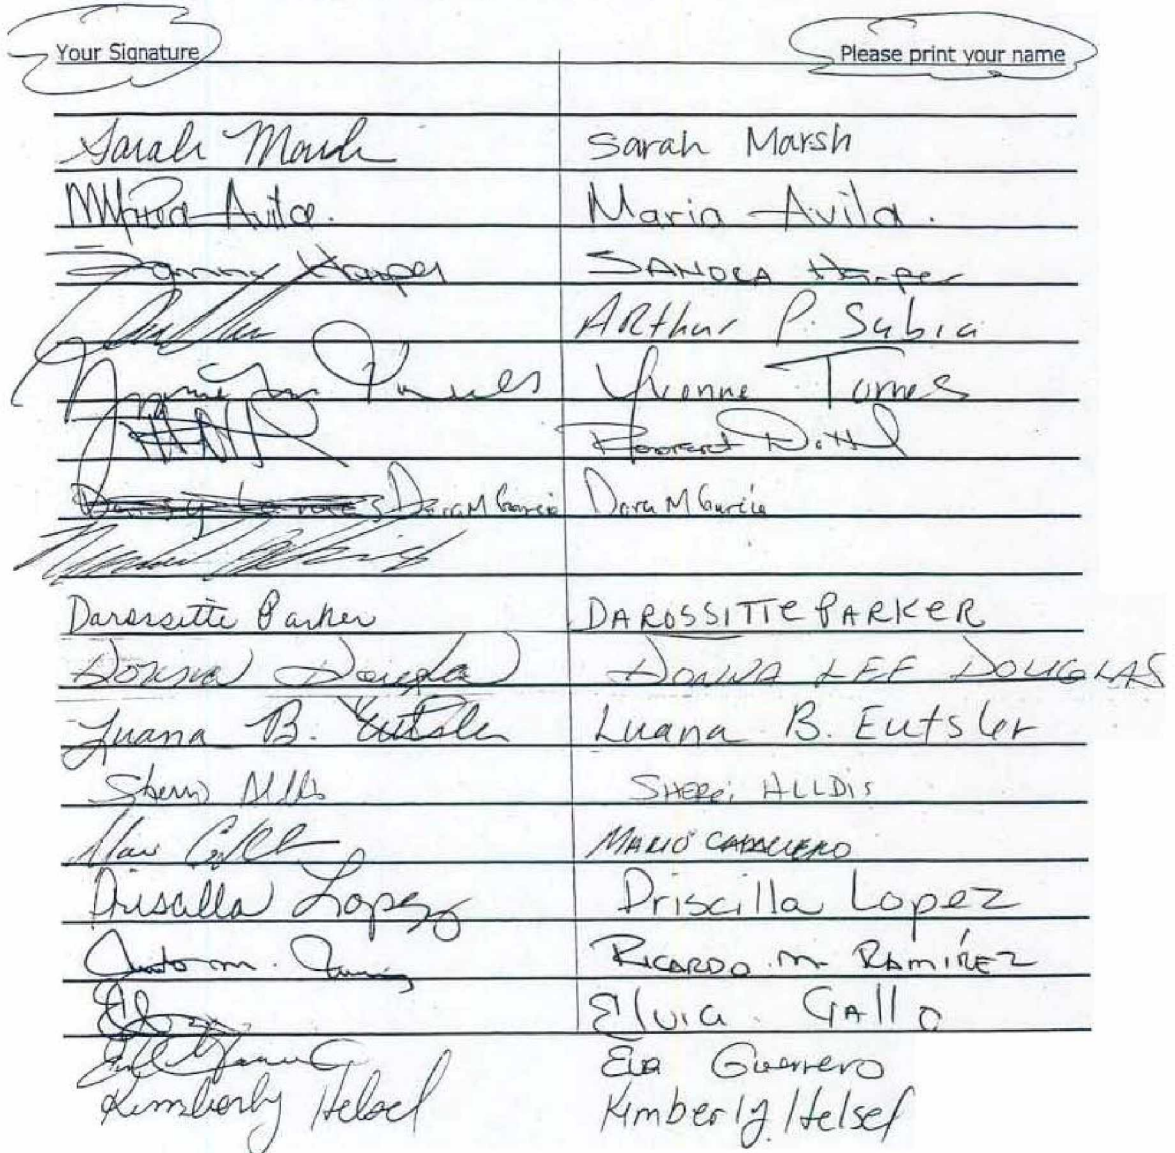 Your Signature Please print your name
Sarah Marsh Sarah Marsh
Maria Avila. Maria Avila.
Harper SANDRA Harper
ARthur P. Subia
Yvonne Torres

Dora M Garcia Dora M Garcia
Darossitte Parker DAROSSITTE PARKER
Donna Douglas DONNA LEE DOUGLAS
Luana B. Eutsler Luana B. Eutsler
Sherri Alldis SHERRi ALLDiS
MARIO CABALLERO
Priscilla Lopez Priscilla Lopez
RICARDO M. RAMÍREZ
Elvia Gallo
Eva Guerrero
Kimberly Helsel Kimberly Helsel